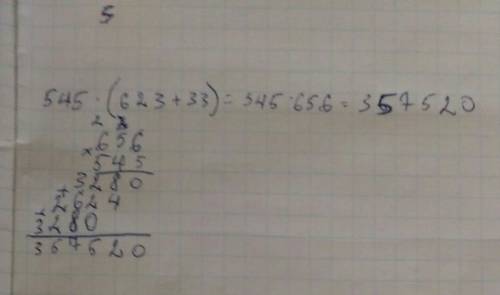 5
545 · (623 + 33) = 545 · 656 = 357520
2 3
656
× 545
3280
+ 2624
3280
357520